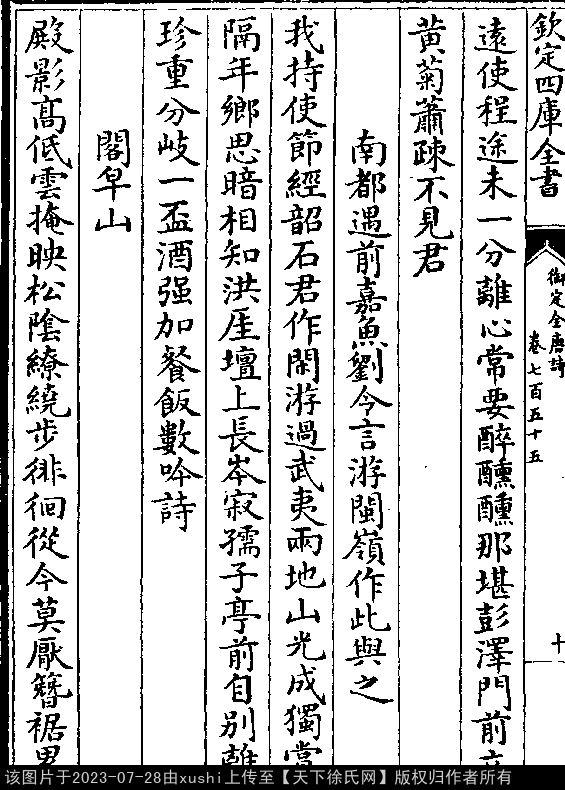 欽定四庫全書
御定全唐詩
卷七百五十五
十
遠使程途未一分離心常要醉醺醺那堪彭澤門前
黃菊蕭疎不見君
南都遇前嘉魚劉令言游閩嶺作此與之
我持使節經韶石君作閑游過武夷兩地山光成獨當
隔年鄉思暗相知洪厓壇上長岑寂孺子亭前自别離
珍重分岐一盃酒强加餐飯數吟詩
閣皁山
殿影高低雲掩映松陰繚繞步徘徊從今莫厭簪裾累
该图片于2023-07-28由xushi上传至【天下徐氏网】版权归作者所有